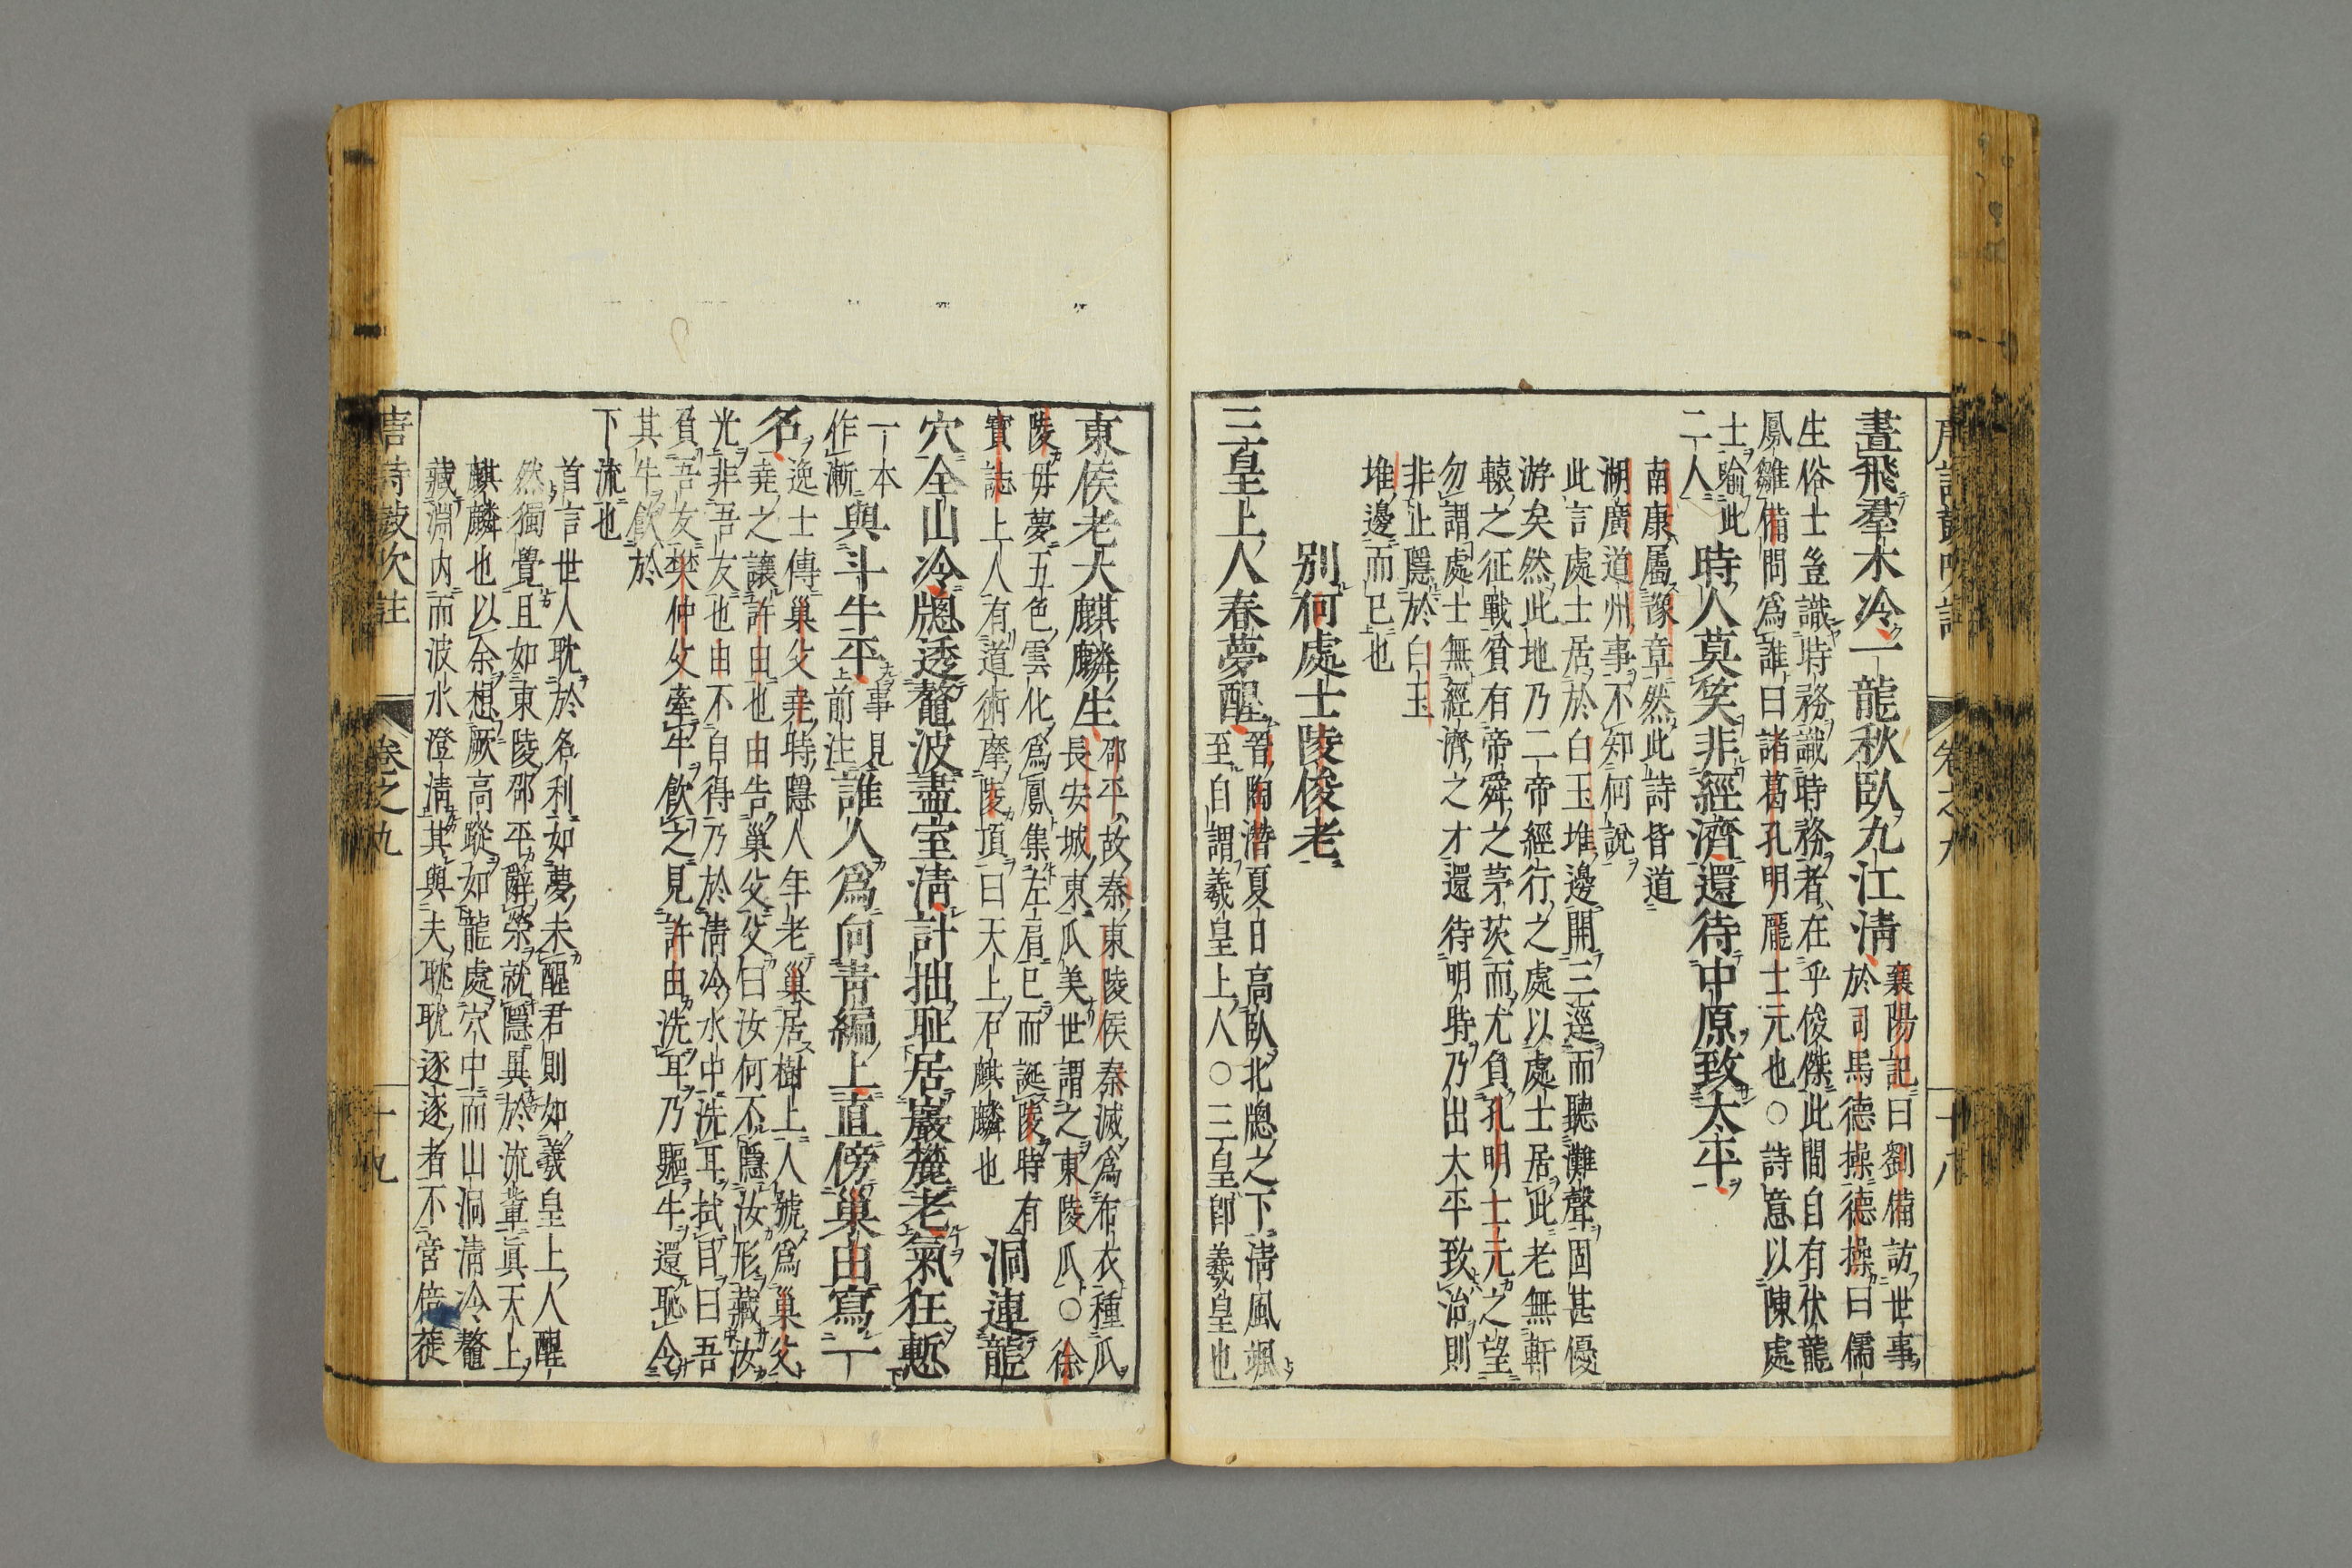 晝飛羣木冷一龍秋臥九江淸
襄陽記曰劉備訪世事
於司馬德操德操曰儒
生俗士豈識時務識時務者在乎俊傑此間自有伏龍
鳳雛備問爲誰曰諸葛孔明龐士元也○詩意以陳處
士喻此
二人
時人莫笑非經濟還待中原致太平
南康屬豫章然此詩皆道
湖廣道州事不知何說
此言處士居於白玉堆邊開三逕而聽灘聲固甚優
游矣然此地乃二帝經行之處以處士居此老無軒
轅之征戰貧有帝舜之茅茨而尤負孔明士元之望
勿謂處士無經濟之才還待明時乃出太平致治則
非止隱於白玉
堆邊而已也
別何處士陵俊老
三皇上人春夢醒
晉陶潛夏日高臥北牕之下淸風颯
至自謂羲皇上人○三皇卽羲皇也
東侯老大麒麟生
邵平故秦東陵侯秦滅爲布衣種瓜
長安城東瓜美世謂之東陵瓜○徐
陵母夢五色雲化爲鳳集左肩已而誕陵時有
寶誌上人有道術摩陵頂曰天上石麒麟也
洞連龍
穴全山冷牕透鼇波盡室淸計拙耻居巖麓老氣狂慙
一本
作漸
與斗牛平
事見
前注
誰人爲向靑編上直傍巢由寫一
名
逸士傳巢父堯時隱人年老巢居樹上人號爲巢父
堯之讓許由也由告巢父父曰汝何不隱汝形藏汝
光非吾友也由不自得乃於淸冷水中洗耳拭目曰吾
負吾友樊仲父牽牛飮之見許由洗耳乃驅牛還恥令
其牛飮於
下流也
首言世人耽於名利如夢未醒君則如羲皇上人醒
然獨覺且如東陵邵平辭榮就隱異於流輩眞天上
麒麟也以余想厥高蹤如龍處穴中而山洞淸冷鼇
藏淵內而波水澄淸其與夫耽耽逐逐者不啻倍蓰
唐詩鼓吹註
卷之九
十八
唐詩鼓吹註
卷之九
十九